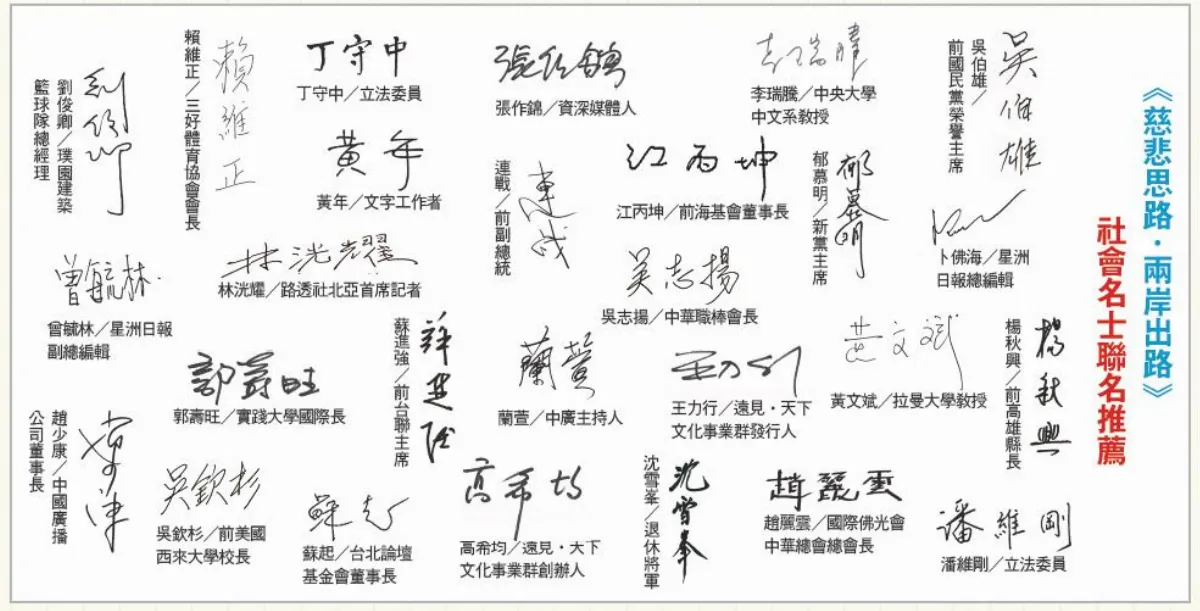 《慈悲思路・兩岸出路》
社會名士聯名推薦
吳伯雄
吳伯雄／
前國民黨榮譽主席
李瑞騰
李瑞騰／中央大學
中文系教授
張作錦
張作錦／資深媒體人
丁守中
丁守中／立法委員
賴維正
賴維正／三好體育協會會長
劉俊卿
劉俊卿／璞園建築
籃球隊總經理
卜佛海／星洲
日報總編輯
郁慕明
郁慕明／新黨主席
江丙坤
江丙坤／前海基會董事長
連戰
連戰／前副總統
黃年
黃年／文字工作者
吳志揚
吳志揚／中華職棒會長
林洸耀
林洸耀／路透社北亞首席記者
曾毓林
曾毓林／星洲日報
副總編輯
楊秋興
楊秋興／前高雄縣長
黃文斌
黃文斌／拉曼大學教授
王力行
王力行／遠見・天下
文化事業群發行人
蘭萱
蘭萱／中廣主持人
蘇進強
蘇進強／前台聯主席
郭壽旺
郭壽旺／實踐大學國際長
趙少康／中國廣播
公司董事長
潘維剛
潘維剛／立法委員
趙麗雲
趙麗雲／國際佛光會
中華總會總會長
沈雪峯
沈雪峯／退休將軍
高希均
高希均／遠見・天下
文化事業群創辦人
蘇起
蘇起／台北論壇
基金會董事長
吳欽杉
吳欽杉／前美國
西來大學校長